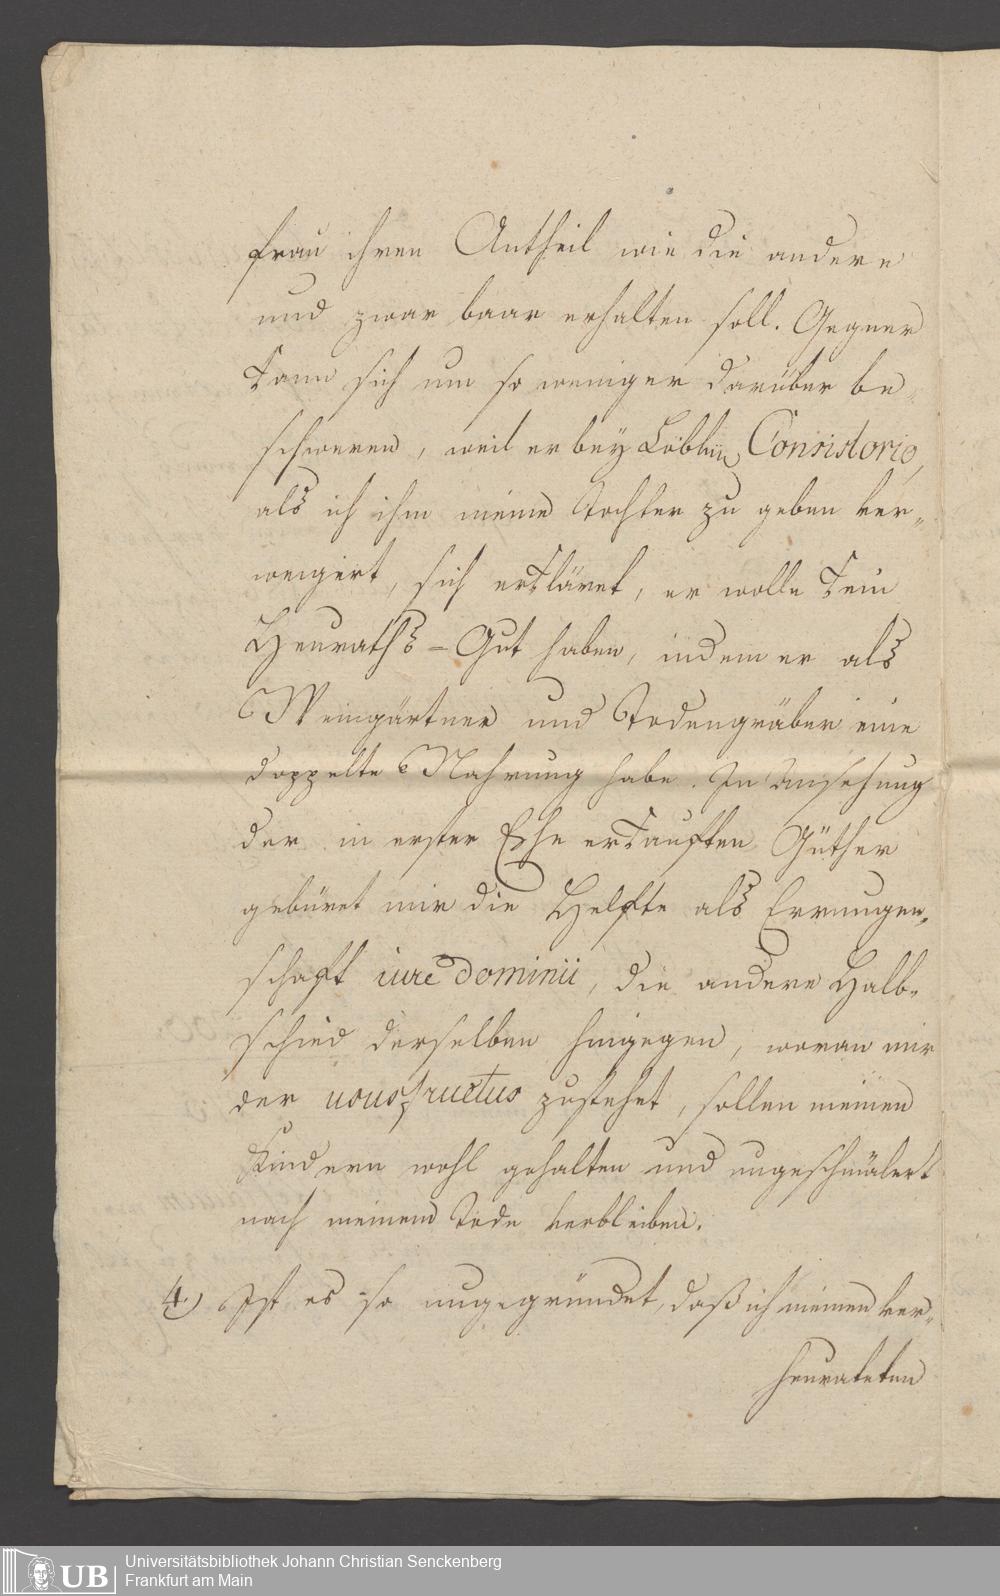 frau ihren Antheil wie die andere
und zwar baar erhalten soll. Gegner
kann sich um so weniger darüber be„
schweren, weil er bey Löbl. Consistorio,
als ich ihm meine Tochter zu geben ver„
weigert, sich erkläret, er wolle kein
Heuraths-Gut haben, indem er als
Weingärtner und Todengräber eine
doppelte Nahrung habe. In Ansehung
der in erster Ehe erkauften Güther
gebüret mir die Helfte als Errungen„
schaft iure dominii, die andere Halb„
schied derselben hingegen, woran mir
der ususfructus zustehet, sollen meinen
Kindern wohl gehalten und ungeschmälert
nach meinem Tode verbleiben.
4.) Ist es so ungegründet, daß ich meinen ver„
heurateten
UB Universitätsbibliothek Johann Christian Senckenberg
Frankfurt am Main